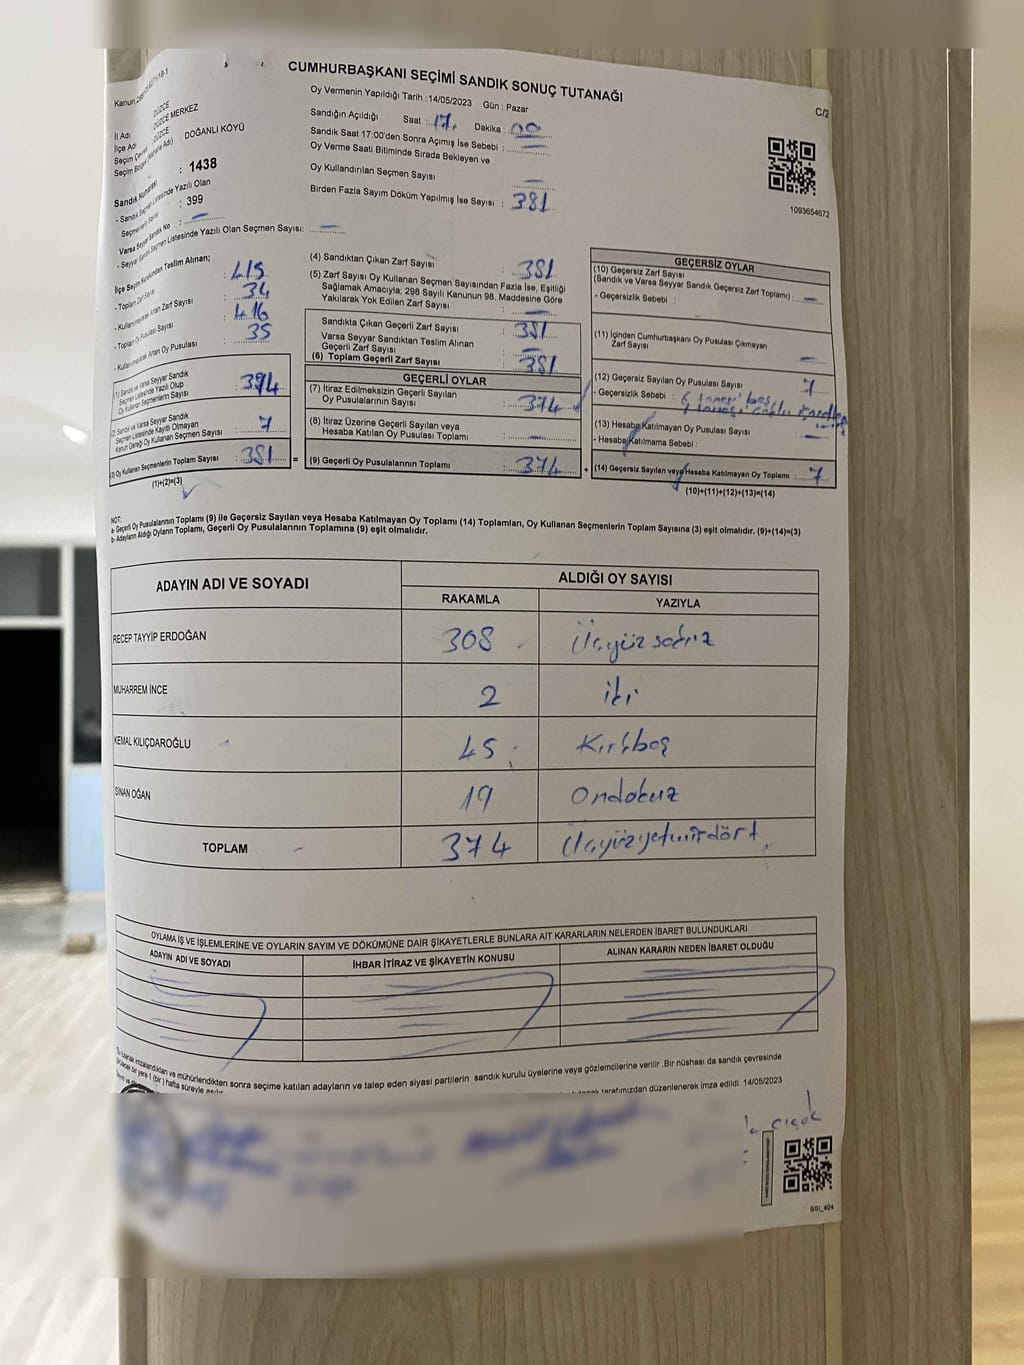 CUMHURBAŞKANI SEÇİMİ SANDIK SONUÇ TUTANAĞI
C/2
İl Adı DÜZCE
İlçe Adı DÜZCE MERKEZ
Seçim Çevresi DÜZCE
: DOĞANLI KÖYÜ
Sandık Numarası : 1438
- Sandık Seçmen Listesinde Yazılı Olan
Seçmenlerin Sayısı : 399
Varsa Seyyar Sandık No : —
- Seyyar Sandık Seçmen Listesinde Yazılı Olan Seçmen Sayısı: —
Oy Vermenin Yapıldığı Tarih :14/05/2023 Gün : Pazar
Sandığın Açıldığı Saat : 17. Dakika : 00
Sandık Saat 17:00'den Sonra Açımış İse Sebebi : —
Oy Verme Saati Bitiminde Sırada Bekleyen ve
Oy Kullandırılan Seçmen Sayısı —
Birden Fazla Sayım Döküm Yapılmış İse Sayısı : 381
1093654672
İlçe Seçim Kurulundan Teslim Alınan;
- Toplam Zarf Sayısı : 415
- Kullanılmayarak Artan Zarf Sayısı : 34
- Toplam Oy Pusulası Sayısı : 416
- Kullanılmayarak Artan Oy Pusulası : 35
(1) Sandık ve Varsa Seyyar Sandık
Seçmen Listesinde Yazılı Olup
Oy Kullanan Seçmenlerin Sayısı : 374
(2) Sandık ve Varsa Seyyar Sandık
Seçmen Listesinde Kayıtlı Olmayan
Kanun Gereği Oy Kullanan Seçmen Sayısı : 7
(3) Oy Kullanan Seçmenlerin Toplam Sayısı : 381 =
(1)+(2)=(3)
(4) Sandıktan Çıkan Zarf Sayısı : 381
(5) Zarf Sayısı Oy Kullanan Seçmen Sayısından Fazla İse, Eşitliği
Sağlamak Amacıyla; 298 Sayılı Kanunun 98. Maddesine Göre
Yakılarak Yok Edilen Zarf Sayısı : —
Sandıkta Çıkan Geçerli Zarf Sayısı : 381
Varsa Seyyar Sandıktan Teslim Alınan
Geçerli Zarf Sayısı : —
(6) Toplam Geçerli Zarf Sayısı : 381
GEÇERLİ OYLAR
(7) İtiraz Edilmeksizin Geçerli Sayılan
Oy Pusulalarının Sayısı : 374
(8) İtiraz Üzerine Geçerli Sayılan veya
Hesaba Katılan Oy Pusulası Toplamı : —
(9) Geçerli Oy Pusulalarının Toplamı : 374 +
GEÇERSİZ OYLAR
(10) Geçersiz Zarf Sayısı
(Sandık ve Varsa Seyyar Sandık Geçersiz Zarf Toplamı) : —
- Geçersizlik Sebebi :
(11) İçinden Cumhurbaşkanı Oy Pusulası Çıkmayan
Zarf Sayısı : —
(12) Geçersiz Sayılan Oy Pusulası Sayısı : 7
- Geçersizlik Sebebi : 6 tanesi boş
(13) Hesaba Katılmayan Oy Pusulası Sayısı : —
- Hesaba Katılmama Sebebi :
(14) Geçersiz Sayılan veya Hesaba Katılmayan Oy Toplamı : 7
(10)+(11)+(12)+(13)=(14)
NOT:
a- Geçerli Oy Pusulalarının Toplamı (9) ile Geçersiz Sayılan veya Hesaba Katılmayan Oy Toplamı (14) Toplamları, Oy Kullanan Seçmenlerin Toplam Sayısına (3) eşit olmalıdır. (9)+(14)=(3)
b- Adayların Aldığı Oyların Toplamı, Geçerli Oy Pusulalarının Toplamına (9) eşit olmalıdır.
ADAYIN ADI VE SOYADI ALDIĞI OY SAYISI
RAKAMLA YAZIYLA
RECEP TAYYİP ERDOĞAN 308 Üçyüz sekiz
MUHARREM İNCE 2 iki
KEMAL KILIÇDAROĞLU 45 Kırkbeş
SİNAN OĞAN 19 Ondokuz
TOPLAM 374 Üçyüzyetmişdört
OYLAMA İŞ VE İŞLEMLERİNE VE OYLARIN SAYIM VE DÖKÜMÜNE DAİR ŞİKAYETLERLE BUNLARA AİT KARARLARIN NELERDEN İBARET BULUNDUKLARI
ADAYIN ADI VE SOYADI İHBAR İTİRAZ VE ŞİKAYETİN KONUSU ALINAN KARARIN NEDEN İBARET OLDUĞU
imzalandıktan ve mühürlendikten sonra seçime katılan adayların ve talep eden siyasi partilerin sandık kurulu üyelerine veya gözlemcilerine verilir .Bir nüshası da sandık çevresinde
bir yere 1 (bir) hafta süreyle
tarafımızdan düzenlenerek imza edildi. 14/05/2023
SSI_404